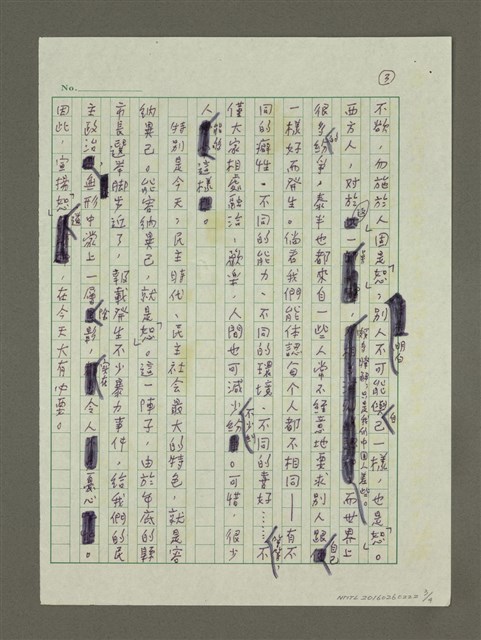 No.
③
不欲,勿施於人固是「恕」,別人不可能像自己一樣,也是「恕」。
西方人,對於這一 明白 而世界上
很多的紛爭,泰半也都來自一些人常不經意地要求別人跟自己
一樣好而發生。倘若我們能体認每個人都不相同——有不
同的癖性、不同的能力、不同的環境、不同的喜好……不
僅大家相處融洽,歡樂,人間也可減少不少的紛爭。可惜,很少
人能這樣。
特別是今天,民主時代、民主社會最大的特色,就是容
納異己。能容納異己,就是「恕」。這一陣子,由於年底的縣
市長選舉脚步近了,報載發生不少暴力事件,給我們的民
主政治,無形中蒙上一層陰影,實在令人憂心。
因此,宣揚「恕」道,在今天大有必要。
NMTL 20160260222 3/4